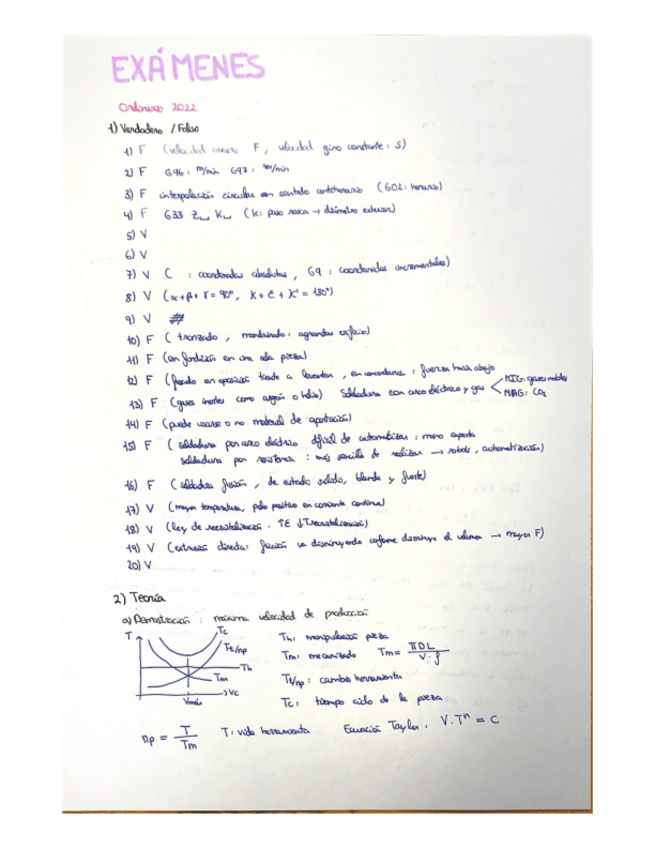 EXÁMENES
Ordinario 2022
1) Verdadero / Falso
1) F (velocidad avance F, velocidad giro constante: S)
2) F G96: m/min G97: rev/min
3) F interpolación circular en sentido antihorario (G02: horario)
4) F G33 Z K (K: paso rosca → diámetro exterior)
5) V
6) V
7) V C : coordenadas absolutas, G9 : coordenadas incrementales)
8) V (α+β+γ = 90º, K + E + K' = 180º)
9) V
10) F (tronzado, mandrinado: agrandar orificio)
11) F (en fundición en una sola pieza)
12) F (fresado en oposición tiende a levantar, en concordancia: fuerza hacia abajo
13) F (gases inertes como argón o helio) Soldadura con arco eléctrico y gas MIG: gases nobles
MAG: CO2
14) F (puede usarse o no material de aportación)
15) F (soldadura por arco eléctrico difícil de automatizar: mano experta
soldadura por resistencia: más sencilla de realizar → robots, automatización)
16) F (soldadura fusión, de estado sólido, blanda y fuerte)
17) V (mayor temperatura, polo positivo en corriente continua)
18) V (ley de recristalización. ↑E ↓Trecristalización)
19) V (extrusión directa: fricción va disminuyendo conforme disminuye el volumen → mayor F)
20) V
2) Teoría
a) Demostración: máxima velocidad de producción
T Tc Tt/np Th Tm Vc Vmáx
Th: manipulación pieza
Tm: mecanizado Tm = πDL / V·f
Tt/np: cambio herramienta
Tc: tiempo ciclo de la pieza
np = T / Tm T: vida herramienta Ecuación Taylor: V·Tⁿ = C